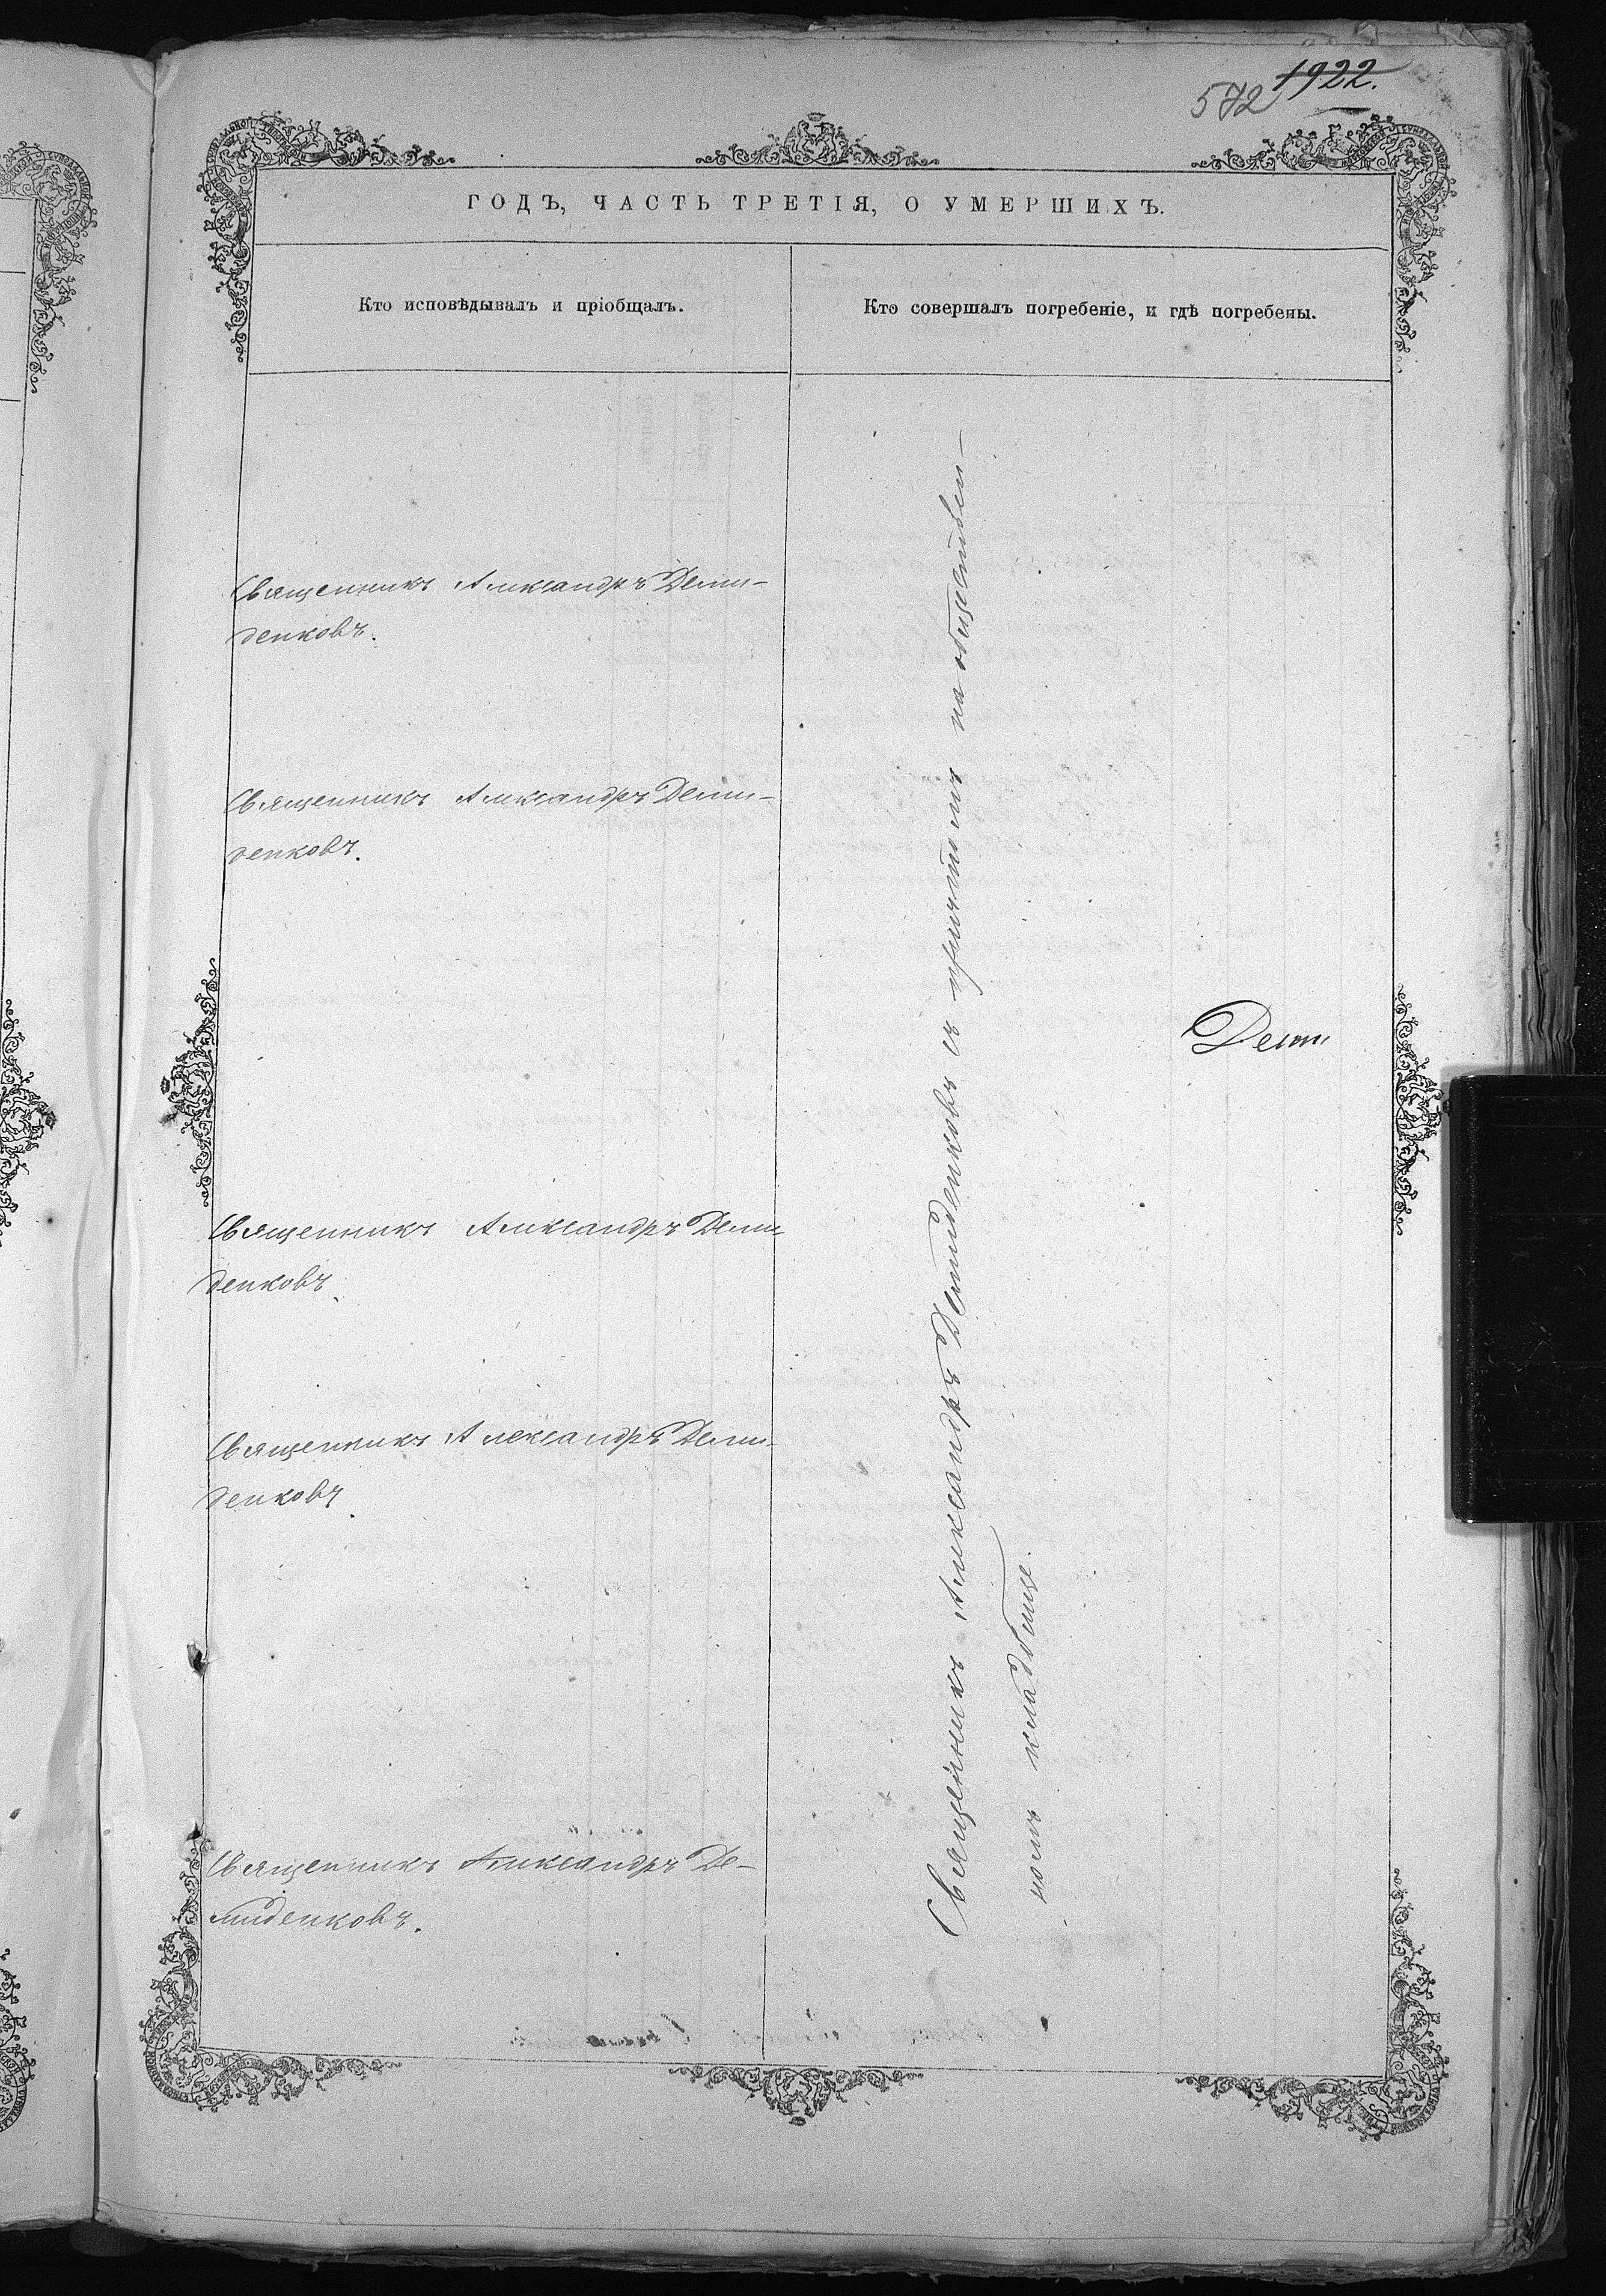 1922.
572
ГОДЪ, ЧАСТЬ ТРЕТІЯ, О УМЕРШИХЪ.
Кто исповѣдывалъ и пріобщалъ.
Кто совершалъ погребеніе, и гдѣ погребены.
Священникъ Александръ Деми-
денковъ.
Священникъ Александръ Деми-
денковъ.
Священникъ Александръ Деми-
денковъ.
Священникъ Александръ Деми-
денковъ.
Священникъ Александръ Де-
миденковъ.
Священникъ Александръ Демиденковъ съ причтомъ на обществен-
номъ кладбище.
Деми